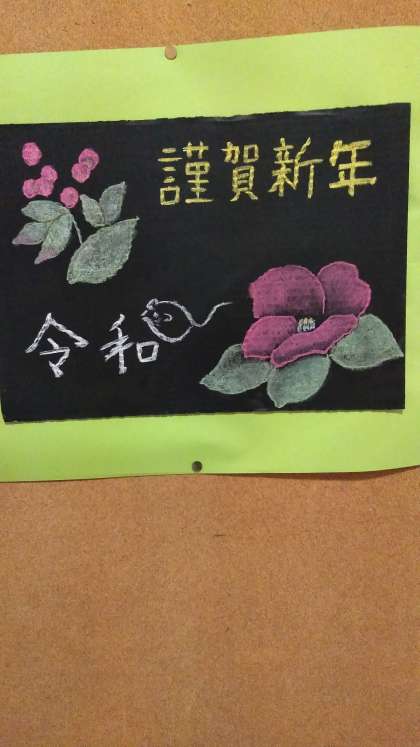 謹賀新年
令和